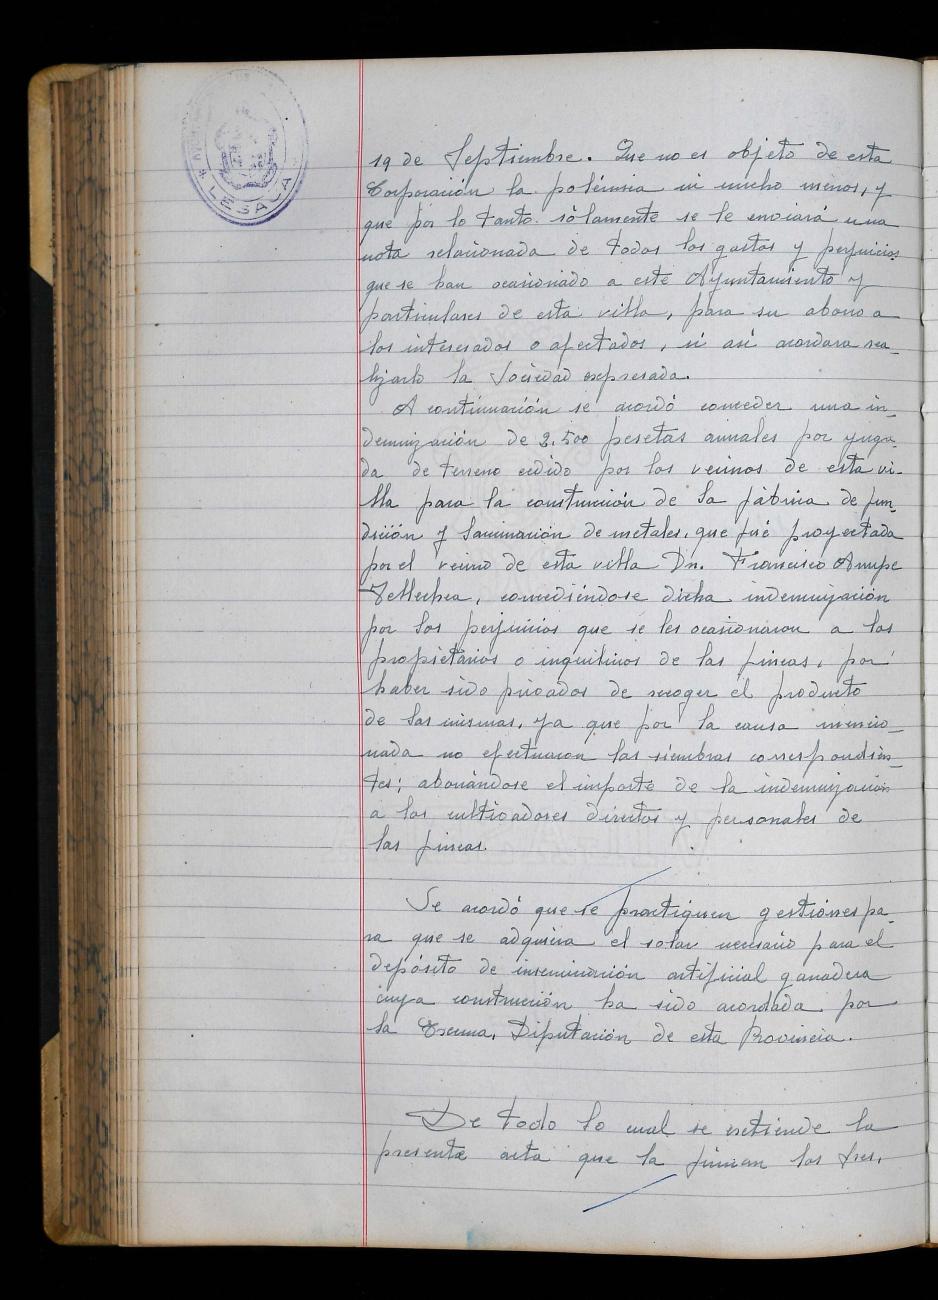 LESACA
19 de Septiembre. Que no es objeto de esta
Corporación la polémica ni mucho menos, y
que por lo tanto sólamente se le enviará una
nota relacionada de todos los gastos y perjuicios
que se han ocasionado a este Ayuntamiento y
particulares de esta villa, para su abono a
los interesados o afectados, si así acordara rea-
lizarlo la Sociedad expresada.
A continuación se acordó conceder una in-
demnización de 2.500 pesetas anuales por yuga-
da de terreno cedido por los vecinos de esta vi-
lla para la construcción de la fábrica de fun-
dición y laminación de metales, que fué proyectada
por el vecino de esta villa Dn. Francisco Arrupe
Tellechea, concediéndose dicha indemnización
por los perjuicios que se les ocasionaron a los
propietarios o inquilinos de las fincas, por
haber sido privados de recoger el producto
de las mismas, ya que por la causa mencio-
nada no efectuaron las siembras correspondien-
tes; abonándose el importe de la indemnización
a los cultivadores directos y personales de
las fincas.
Se acordó que se practiquen gestiones pa-
ra que se adquiera el solar necesario para el
depósito de inseminación artificial ganadera
cuya construcción ha sido acordada por
la Excma. Diputación de esta Provincia.
De todo lo cual se extiende la
presente acta que la firman los Sres.